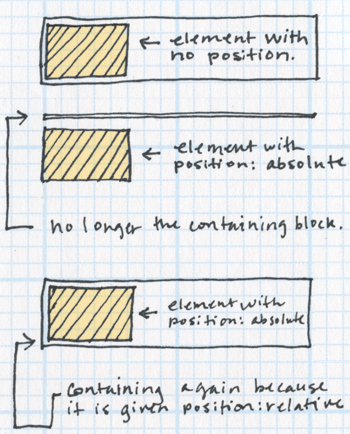 element with
no position.
element with
position: absolute
no longer the containing block.
element with
position: absolute
containing again because
it is given position:relative